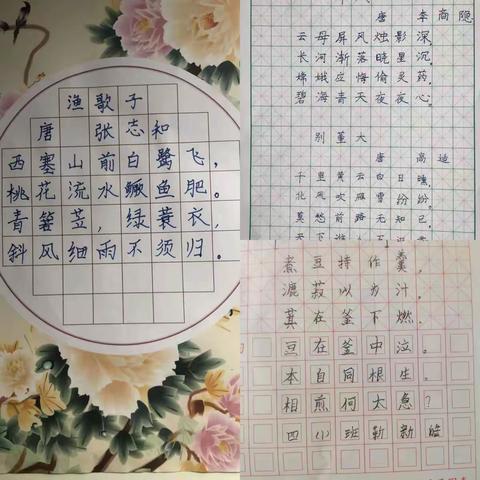 渔歌子
唐 张志和
西塞山前白鹭飞，
桃花流水鳜鱼肥。
青箬笠，绿蓑衣，
斜风细雨不须归。
唐 李商隐
云母屏风烛影深，
长河渐落晓星沉。
嫦娥应悔偷灵药，
碧海青天夜夜心。
别董大
唐 高适
千里黄云白日曛，
北风吹雁雪纷纷。
莫愁前路无知己，
天下
煮豆持作羹，
漉菽以为汁。
萁在釜下燃，
豆在釜中泣。
本自同根生。
相煎何太急？
四小班靳新皓